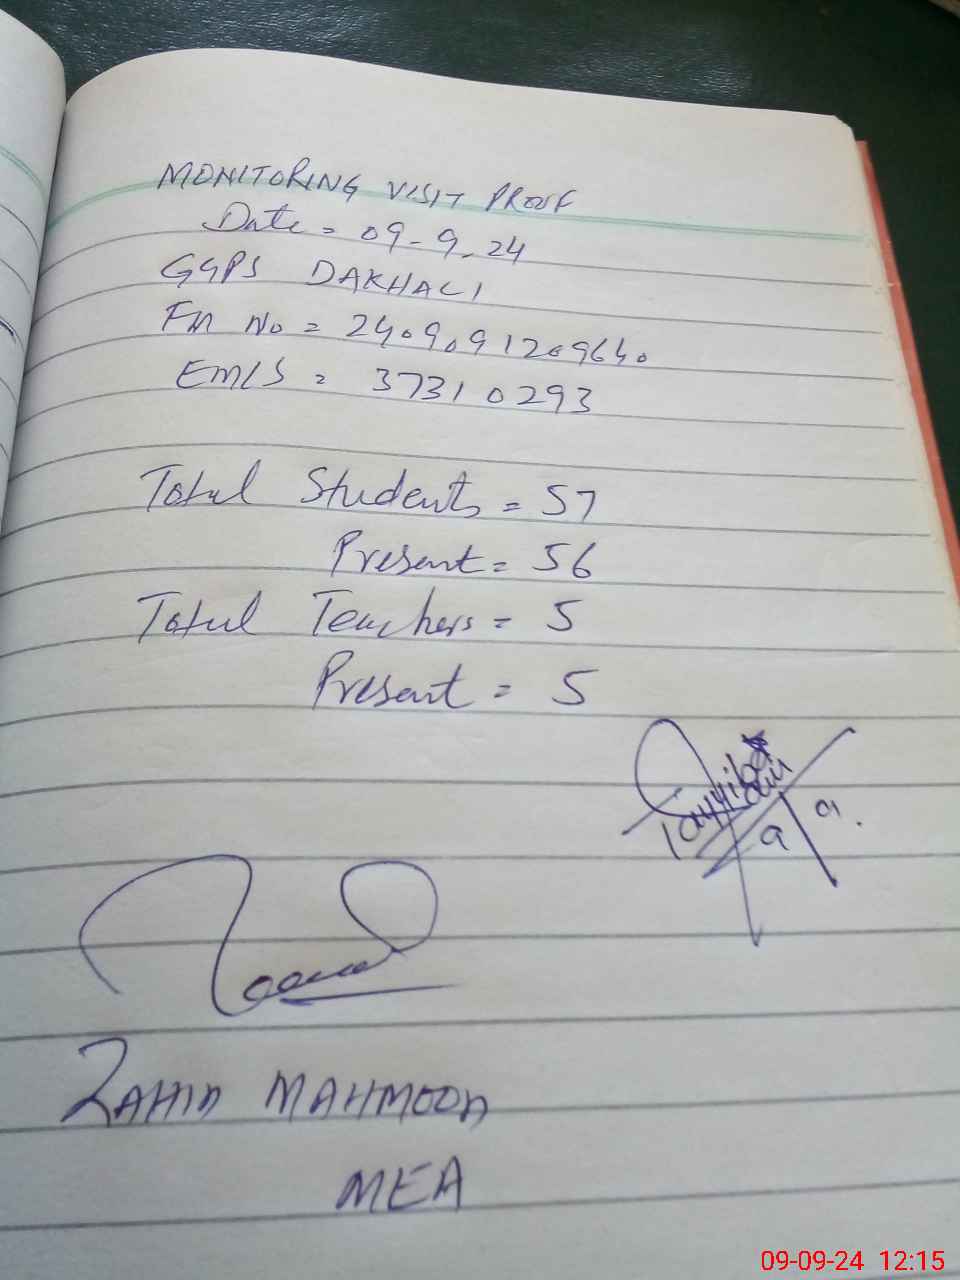 MONITORING VISIT PROOF
Date = 09-9-24
GGPS DAKHALI
FM No = 2409091209640
EMIS = 37310293
Total Students = 57
Present = 56
Total Teachers = 5
Present = 5
Tayyiba
9/9.
ZAHID MAHMOOD
MEA
09-09-24 12:15